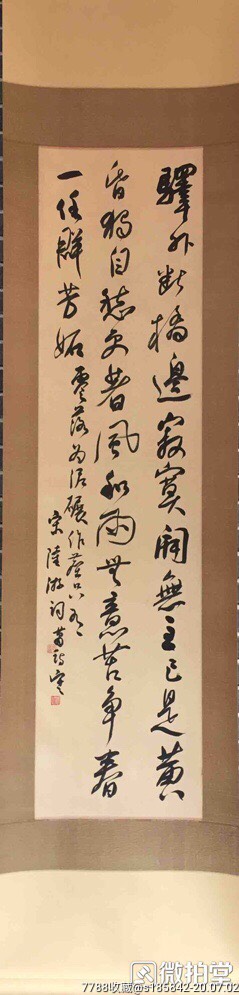 驛外斷橋邊寂寞開無主已是黄
昏獨自愁更著風和雨無意苦争春
一任群芳妬零落为泥碾作塵只
宋陸游詞
微拍堂
7788收藏@s185842-20.07.02